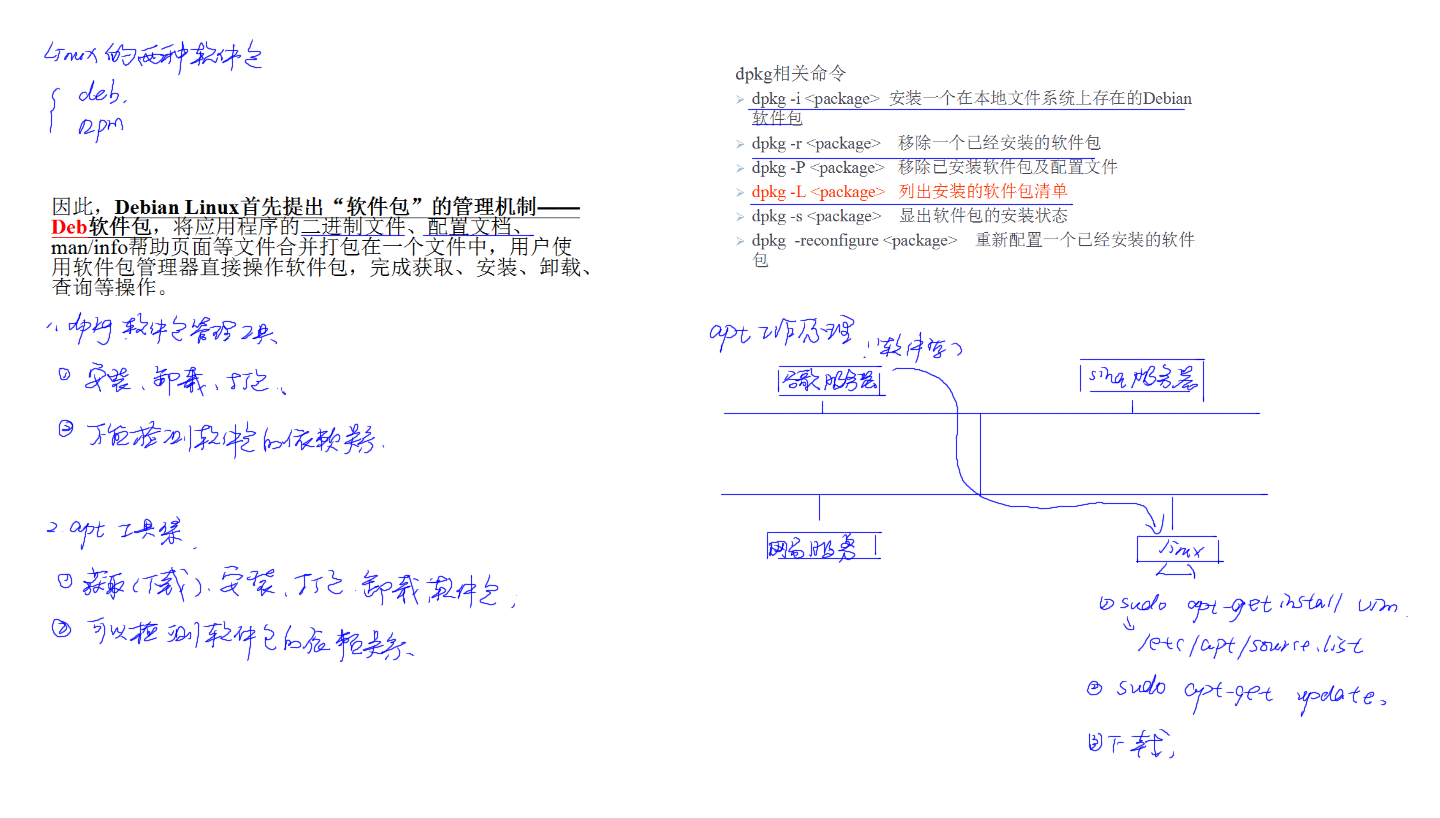 Linux的两种软件包
deb.
rpm
因此，Debian Linux首先提出“软件包”的管理机制——
Deb软件包，将应用程序的二进制文件、配置文档、
man/info帮助页面等文件合并打包在一个文件中，用户使
用软件包管理器直接操作软件包，完成获取、安装、卸载、
查询等操作。
1、dpkg 软件包管理工具
① 安装、卸载、打包、
② 不能检测软件包的依赖关系.
2. apt 工具集
① 获取(下载)、安装、打包、卸载软件包,
② 可以检测软件包的依赖关系、
dpkg相关命令
dpkg -i <package> 安装一个在本地文件系统上存在的Debian
软件包
dpkg -r <package> 移除一个已经安装的软件包
dpkg -P <package> 移除已安装软件包及配置文件
dpkg -L <package> 列出安装的软件包清单
dpkg -s <package> 显出软件包的安装状态
dpkg -reconfigure <package> 重新配置一个已经安装的软件
包
apt 工作原理
软件
谷歌服务器
sina服务器
网易服务
linux
① sudo apt-get install vim
/etc/apt/source.list
② sudo apt-get update、
③下载